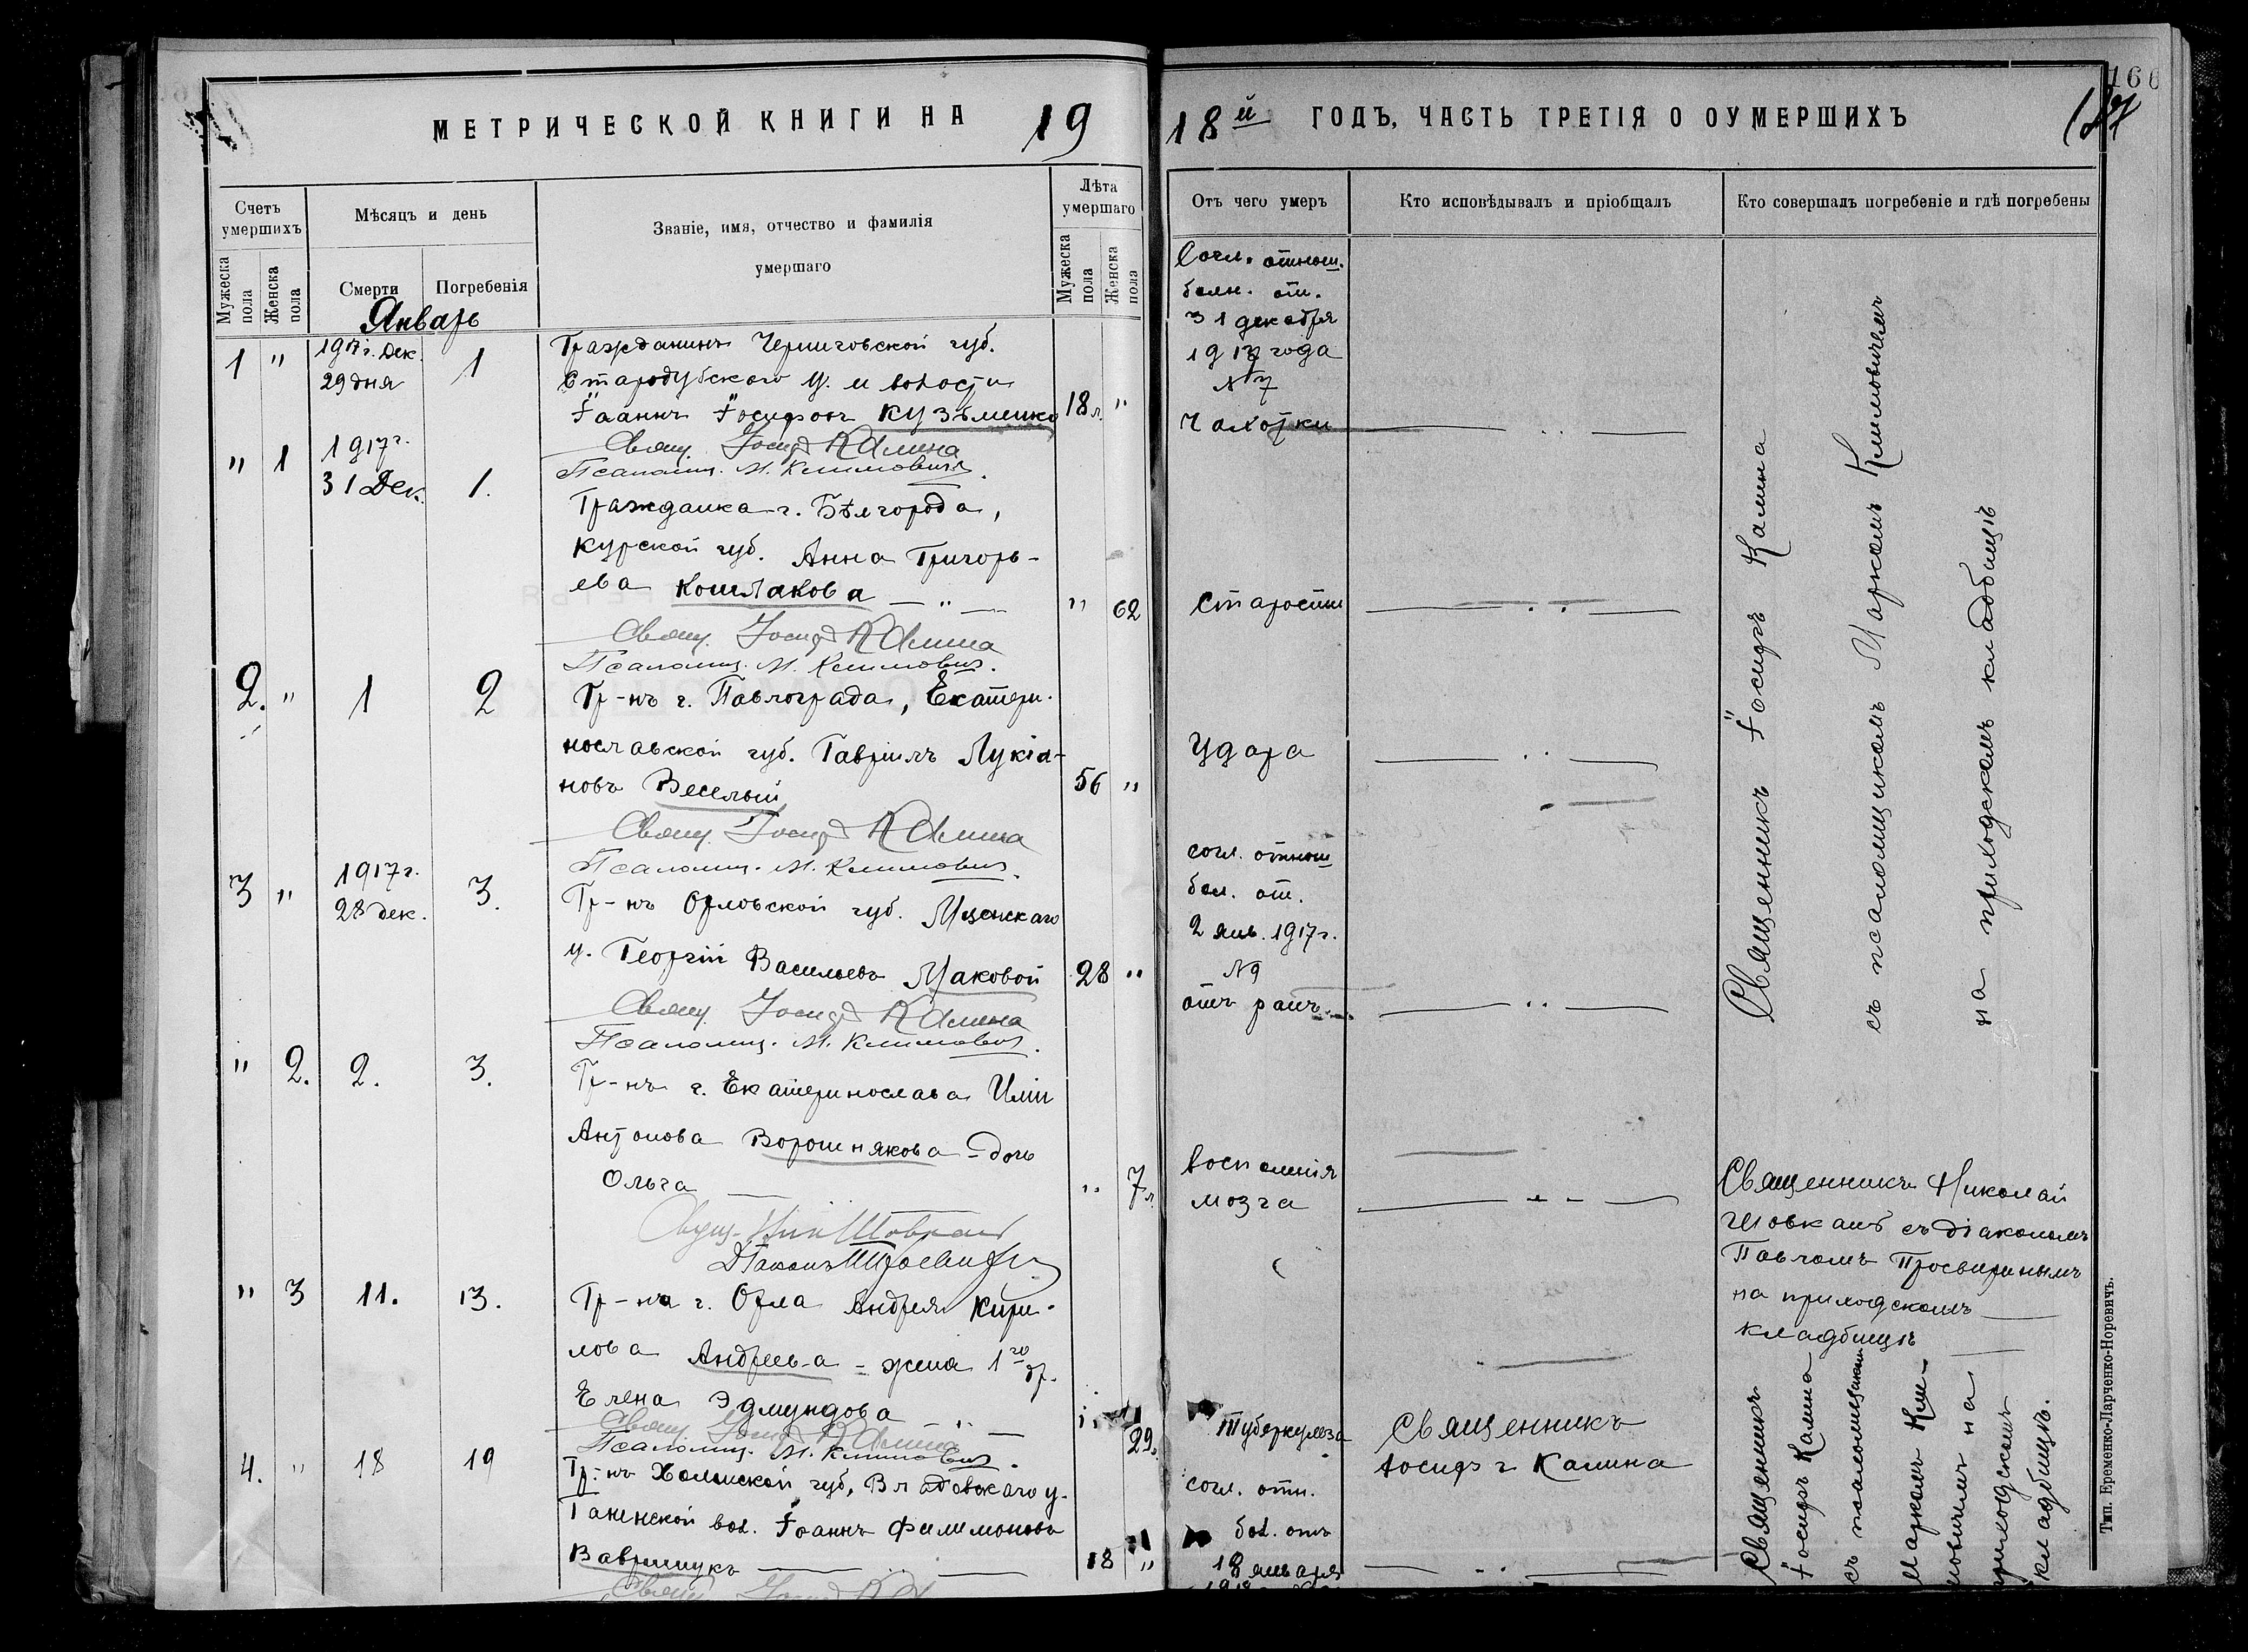 МЕТРИЧЕСКОЙ КНИГИ НА 19
Счетъ умершихъ
Мужеска пола
Женска пола
Мѣсяцъ и день
Смерти
Погребенія
Званіе, имя, отчество и фамилія
умершаго
Лѣта умершаго
Мужеска пола
Женска пола
Январь
1 " 1917 г. Дек. 29 дня 1
Гражданинъ Черниговской губ.
Стародубскаго у. и волости
Іоаннъ Іосифовъ Кузьменко 18 л. "
Свящ. Іосиф Калина
Псаломщ. М. Климович.
" 1 1917 г. 31 Дек. 1.
Гражданка г. Бѣлгорода,
Курской губ. Анна Григорь-
ева Кошлакова — " — " 62
Свящ. Іосиф Калина
Псаломщ. М. Климович.
2. " 1 2
Гр-нъ г. Павлограда, Екатери-
нославской губ. Гавріилъ Лукіа-
новъ Веселый 56 "
Свящ. Іосиф Калина
Псаломщ. М. Климович.
3 " 1917 г. 28 дек. 3.
Гр-нъ Орловской губ. Мценскаго
у. Георгій Васильевъ Маковой 28 "
Свящ. Іосиф Калина
Псаломщ. М. Климович.
" 2. 2. 3.
Гр-нъ г. Екатеринослава Иліи
Антонова Ворошнякова - дочь
Ольга — " 7 л.
Свящ. Ник Шовкап
Діаконъ
" 3 11. 13.
Гр-на г. Орла Андрея Кири-
лова Андреева - жена 1го бр.
Елена Эдмундова — " — 29.
Свящ. Іосиф Калина
Псаломщ. М. Климович.
4. " 18 19
Гр-нъ Холмской губ, Влодавскаго у.
вол. Іоаннъ Филимоновъ
Вавринукъ — " — 18 "
Свящ. Іосиф
18й ГОДЪ, ЧАСТЬ ТРЕТІЯ О ОУМЕРШИХЪ
166
Отъ чего умеръ
Кто исповѣдывалъ и пріобщалъ
Кто совершалъ погребеніе и гдѣ погребены
Согл. отнош.
болн. от.
31 декабря
1917 года
№ 7
Чахотки
Старости
Удара
согл. отнош
бол. от.
2 янв. 1917 г.
№ 9
отъ ранъ
Воспаленія
мозга
Туберкулеза
согл. отн.
бол. отъ
18 января
Священникъ
Іосифъ Калина
Священникъ Іосифъ Калина
съ псаломщикомъ Маркомъ Климовичемъ
на приходскомъ кладбищѣ
Священникъ Николай
Шовкапъ съ діакономъ
Павломъ Просвиринымъ
на приходскомъ
кладбищѣ
Священникъ
Іосифъ Калина
съ псаломщикомъ
Маркомъ Кли-
мовичемъ на
приходскомъ
кладбищѣ.
Тип. Еременко-Ларченко-Норевичъ.